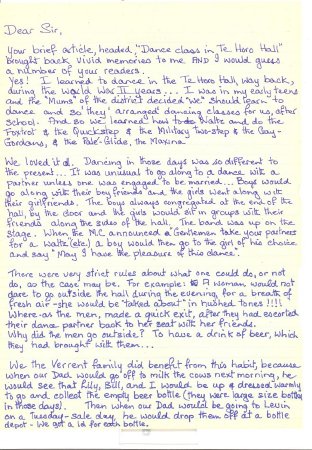 Dear Sir,
Your brief article, headed, "Dance class in Te Horo Hall"
brought back vivid memories to me AND I would guess
a number of your readers.
Yes! I learned to dance in the Te Horo Hall, way back,
during the World War II years... I was in my early teens
and the "Mums" of the district decided "we" should learn to
dance and so they arranged dancing classes for us, after
school. And so we learned how to do Waltz and do the
Foxtrot & the Quickstep & the Military Two-step & the Gay-
Gordons, & the Pole-Glide, the Maxina.
We loved it all. Dancing in those days was so different to
the present... It was unusual to go along to a dance with a
partner unless one was engaged to be married... Boys would
go along with their boy friends and the girls went along with
their girlfriends. The boys always congregated at the end of the
hall, by the door and the girls would sit in groups with their
friends along the sides of the hall. The band was up on the
stage. When the M.C announced "Gentlemen take your partners
for a waltz (etc.) a boy would then go to the girl of his choice
and say "May I have the pleasure of this dance".
There were very strict rules about what one could do, or not
do, as the case may be. For example: A woman would not
dare to go outside the hall during the evening, for a breath of
fresh air - she would be "talked about" in hushed tones !!!!
Where-as the men, made a quick exit, after they had escorted
their dance partner back to her seat with her friends.
Why did the men go outside? To have a drink of beer, which
they had brought with them...
We the Verrent family did benefit from this habit, because
when our Dad would go off to milk the cows next morning, he
would see that Lily, Bill, and I would be up & dressed warmly
to go and collect the empty beer bottles (they were large size bottles
in those days). Then when our Dad would be going to Levin
on a Tuesday - sale day, he would drop them off at a bottle
depot - We got a 1d for each bottle.